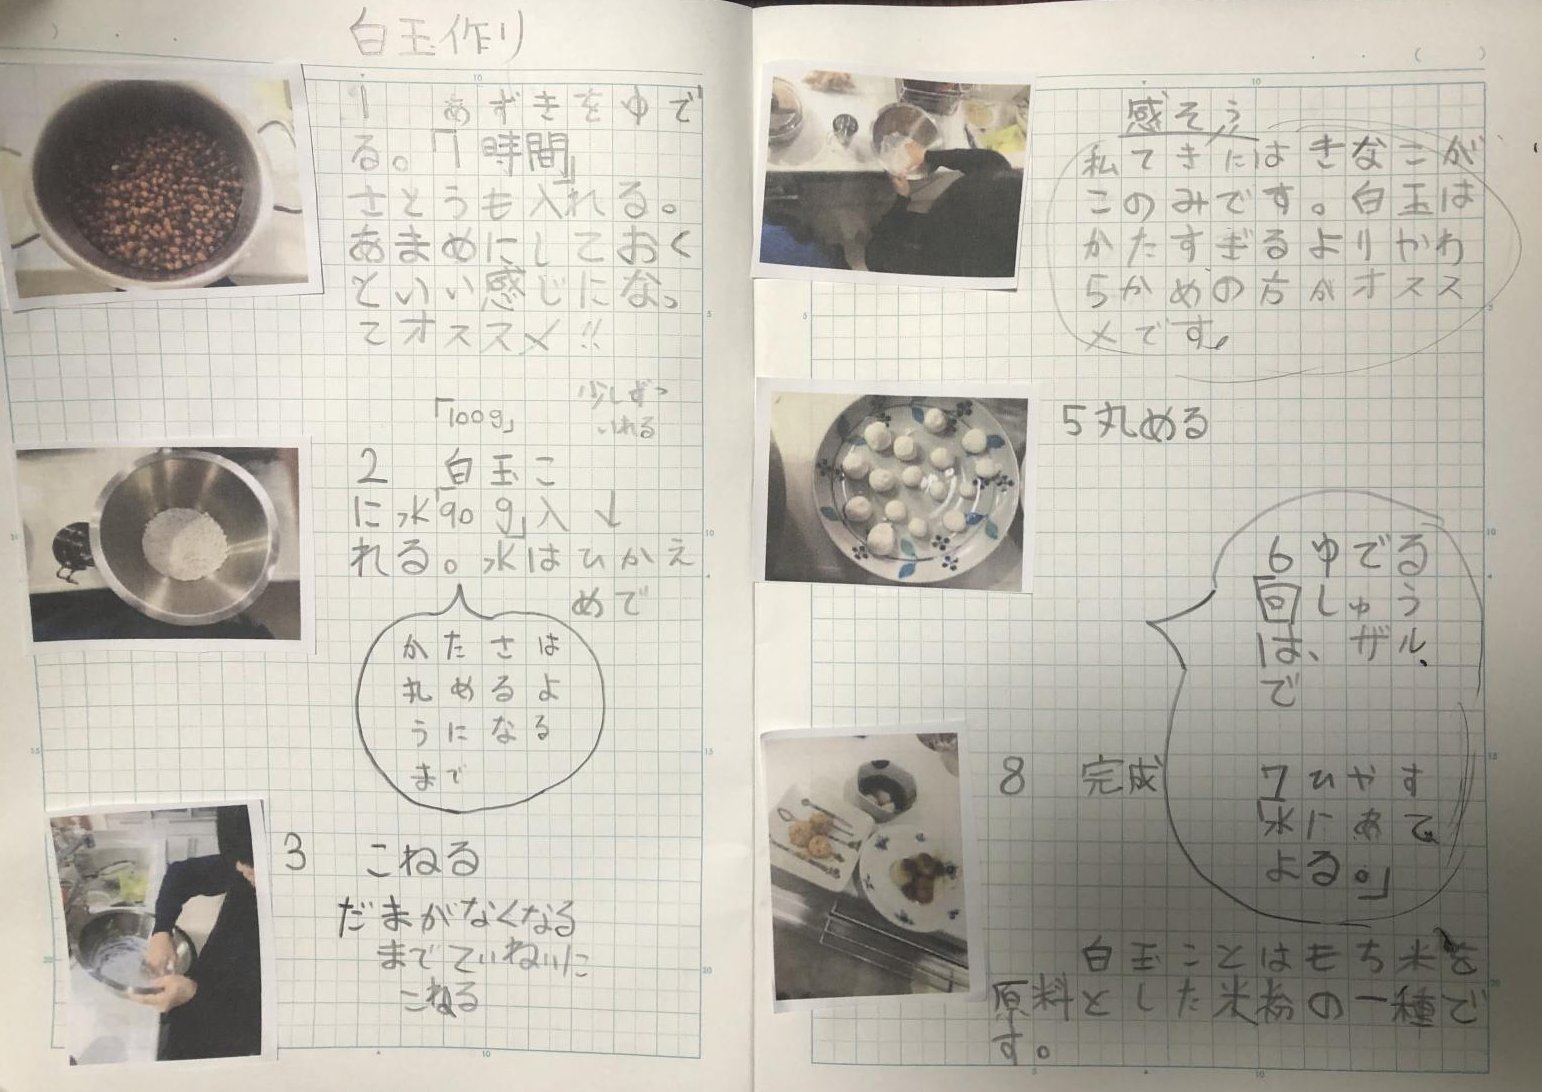 白玉作り
1 あずきをゆで
る。「1時間」
さとうも入れる。
あまめにしておく
といい感じになっ
てオススメ!!
「100g」
少しずつ
いれる
2 白玉こ
に水「90g」入↓
れる。水はひかえ
めで
かたさは
丸めるよ
うになる
まで
3 こねる
だまがなくなる
までていねいに
こねる
感そう
私てきにはきなこが
このみです。白玉は
かたすぎるよりやわ
らかめの方がオスス
メです。
5丸める
6ゆでる
回しゅう
は、ザル、
で
7ひやす
「水にあて
よる。」
8 完成
白玉ことはもち米を
原料とした米粉の一種で
す。